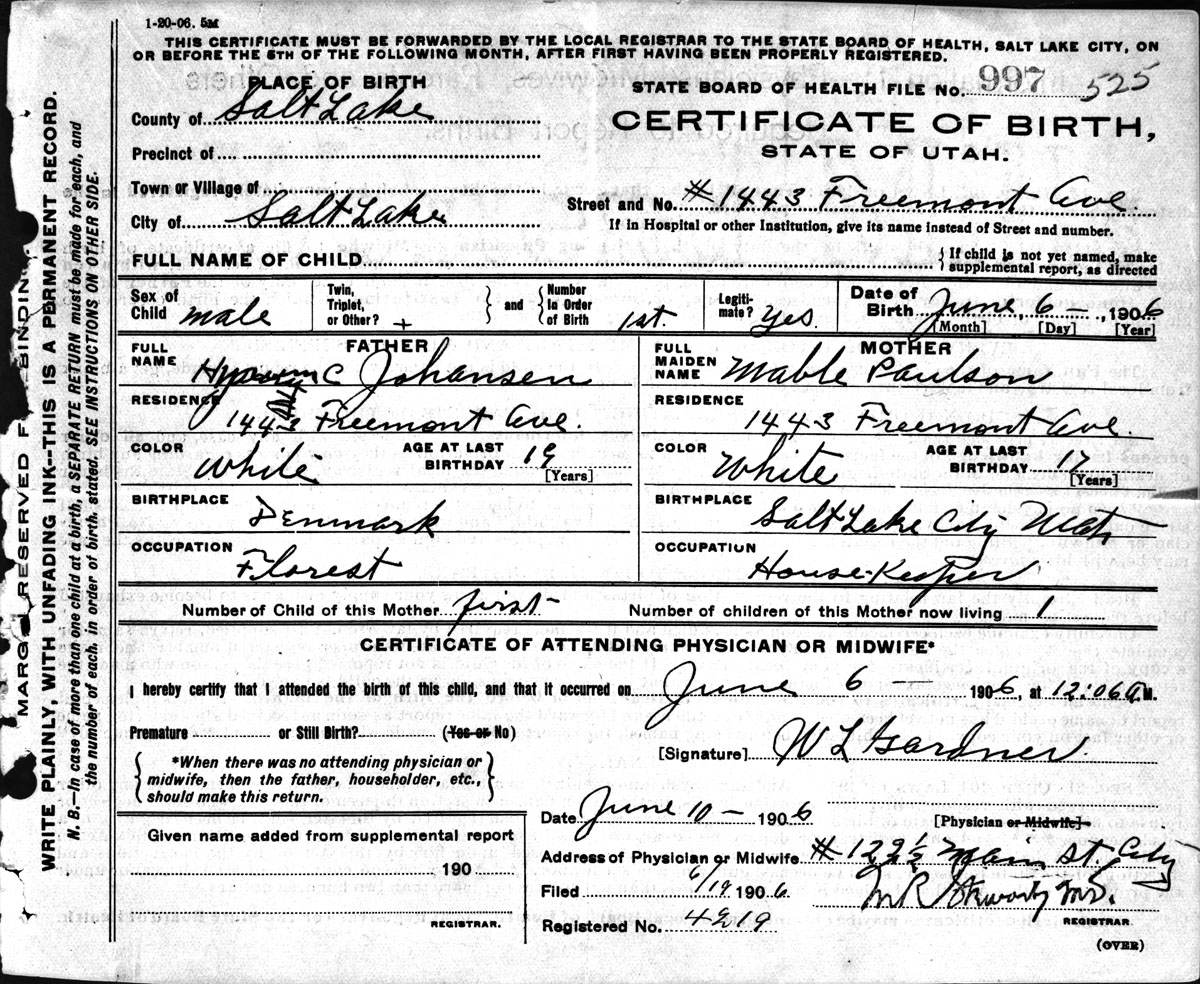 1-20-06. 5M
THIS CERTIFICATE MUST BE FORWARDED BY THE LOCAL REGISTRAR TO THE STATE BOARD OF HEALTH, SALT LAKE CITY, ON
OR BEFORE THE 5TH OF THE FOLLOWING MONTH, AFTER FIRST HAVING BEEN PROPERLY REGISTERED.
PLACE OF BIRTH
STATE BOARD OF HEALTH FILE No. 997 525
County of Salt Lake
CERTIFICATE OF BIRTH,
STATE OF UTAH.
Precinct of
Town or Village of
Street and No. #1443 Freemont Ave
City of Salt Lake
If in Hospital or other Institution, give its name instead of Street and number.
FULL NAME OF CHILD { If child is not yet named, make
supplemental report, as directed
Sex of Child male
Twin, Triplet, or Other? +
and { Number In Order of Birth 1st.
Legiti-mate? Yes.
Date of Birth June 6 —, 1906
[Month] [Day] [Year]
FATHER
FULL NAME C Johansen
RESIDENCE
1443 Freemont Ave.
COLOR White AGE AT LAST BIRTHDAY 19
[Years]
BIRTHPLACE
Denmark
OCCUPATION
Florest
MOTHER
FULL MAIDEN NAME Mable Paulson
RESIDENCE
1443 Freemont Ave.
COLOR White AGE AT LAST BIRTHDAY 17
[Years]
BIRTHPLACE
Salt Lake City
OCCUPATION
House-Keeper
Number of Child of this Mother first- Number of children of this Mother now living 1
CERTIFICATE OF ATTENDING PHYSICIAN OR MIDWIFE*
I hereby certify that I attended the birth of this child, and that it occurred on June 6 — 1906, at 12:06 A.M.
Premature or Still Birth? (Yes or No)
[Signature] W L Gardner.
{ *When there was no attending physician or
midwife, then the father, householder, etc.,
should make this return. }
Date June 10 — 1906 [Physician or Midwife]
Given name added from supplemental report
190
REGISTRAR.
Address of Physician or Midwife #122½ Main St. City
Filed 6/19 1906
M.D.
Registered No. 4219 REGISTRAR.
(OVER)
MARGIN RESERVED FOR BINDING
WRITE PLAINLY, WITH UNFADING INK--THIS IS A PERMANENT RECORD.
N. B.—In case of more than one child at a birth, a SEPARATE RETURN must be made for each, and
the number of each, in order of birth, stated. SEE INSTRUCTIONS ON OTHER SIDE.